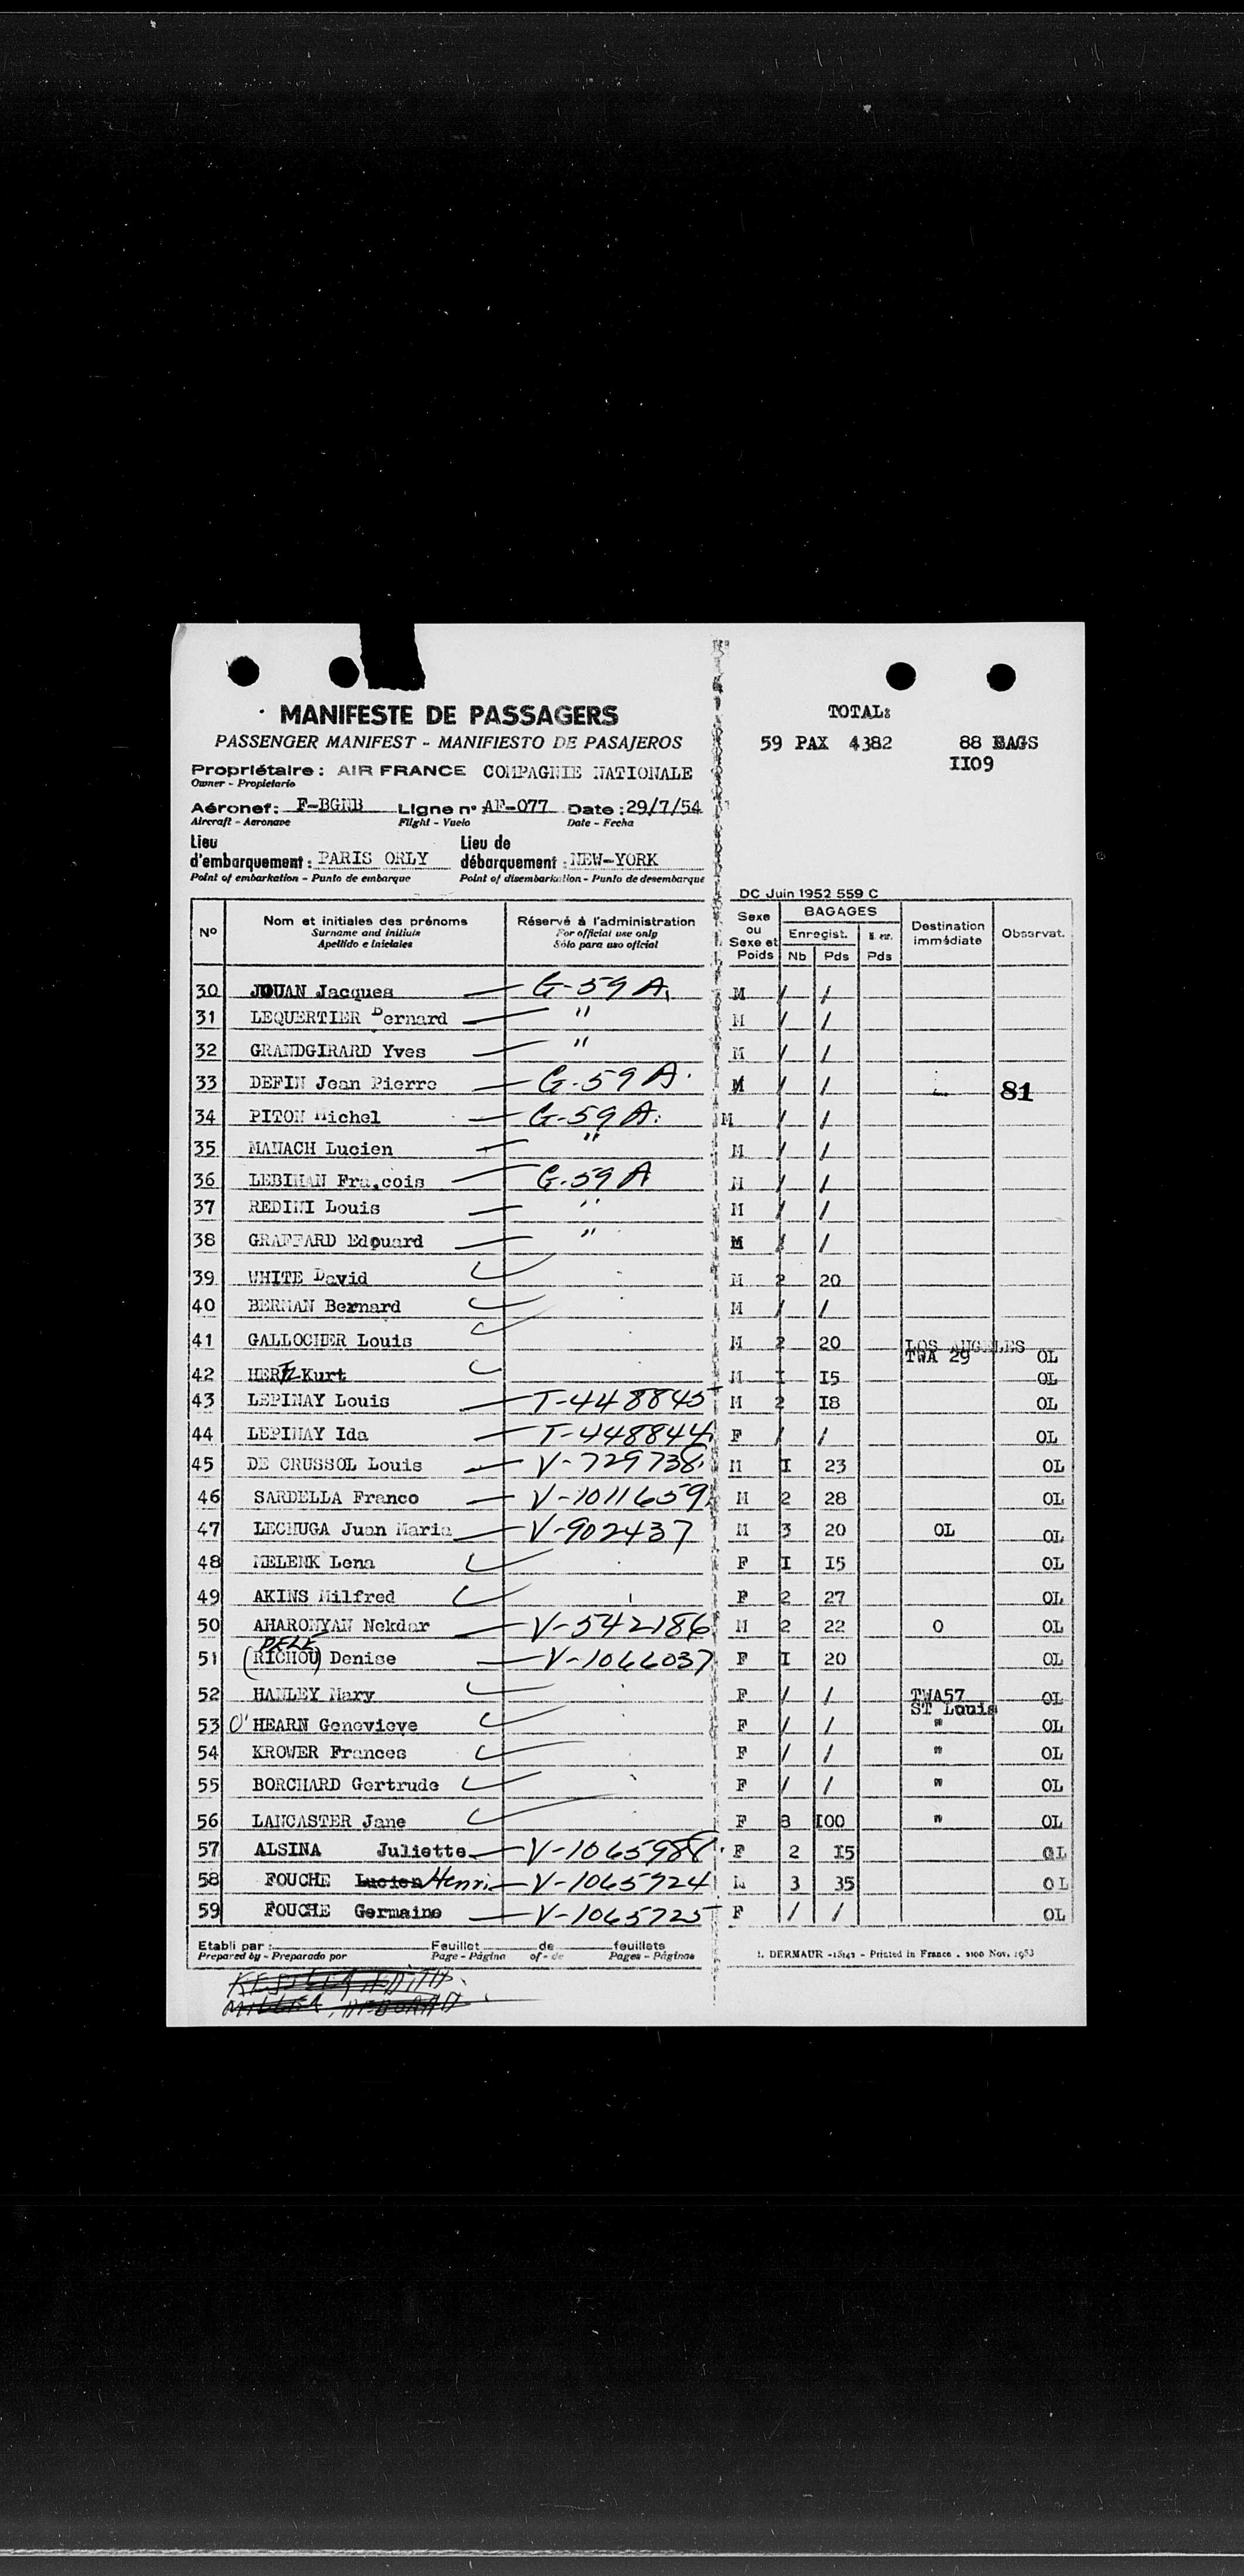 MANIFESTE DE PASSAGERS
PASSENGER MANIFEST - MANIFIESTO DE PASAJEROS
Propriétaire : AIR FRANCE COMPAGNIE NATIONALE
Owner - Propietario
Aéronef : F-BGNB Ligne nº AF-077 Date : 29/7/54
Aircraft - Aeronave Flight - Vuelo Date - Fecha
Lieu d'embarquement : PARIS ORLY Lieu de débarquement : NEW-YORK
Point of embarkation - Punto de embarque Point of disembarkation - Punto de desembarque
TOTAL:
59 PAX 4382 88 BAGS
II09
DC Juin 1952 559 C
Nº Nom et initiales des prénoms Réservé à l'administration Sexe ou Sexe et Poids BAGAGES Destination immédiate Observat.
Surname and initials For official use only Enregist.
Apellido e iniciales Sólo para uso oficial Nb Pds Pds
30 JOUAN Jacques — G-59A. M / /
31 LEQUERTIER Bernard — " M / /
32 GRANDGIRARD Yves — " M / /
33 DEFIN Jean Pierre — G-59A. M / / 81
34 PITON Michel — G-59A. M / /
35 MANACH Lucien — " M / /
36 LEBIHAN Fra,cois — G-59A M / /
37 REDINI Louis — " M / /
38 GRAFFARD Edouard — " M / /
39 WHITE David ✓ M 2 20
40 BERMAN Bernard ✓ M / /
41 GALLOCHER Louis ✓ M 2 20 LOS ANGELES TWA 29 OL
42 HERTZ Kurt ✓ M I I5 OL
43 LEPINAY Louis — T-448845 M 2 I8 OL
44 LEPINAY Ida — T-448844 F / / OL
45 DE CRUSSOL Louis — V-729738. M I 23 OL
46 SARDELLA Franco — V-1011659 M 2 28 OL
47 LECHUGA Juan Maria — V-902437 M 3 20 OL OL
48 MELENK Lena ✓ F I I5 OL
49 AKINS Milfred ✓ F 2 27 OL
50 AHARONYAN Nekdar — V-542186 M 2 22 O OL
51 (RICHOU) DELE Denise — V-1066037 F I 20 OL
52 HANLEY Mary ✓ F / / TWA57 ST Louis OL
53 O'HEARN Genevieve ✓ F / / " OL
54 KROWER Frances ✓ F / / " OL
55 BORCHARD Gertrude ✓ F / / " OL
56 LANCASTER Jane ✓ F 3 I00 " OL
57 ALSINA Juliette — V-1065988. F 2 I5 OL
58 FOUCHE Lucien Henri — V-1065724 M 3 35 OL
59 FOUCHE Germaine — V-1065725 F / / OL
Etabli par : Feuillet de feuillets
Prepared by - Preparado por Page - Página of - de Pages - Páginas
DERMAUR - Printed in France